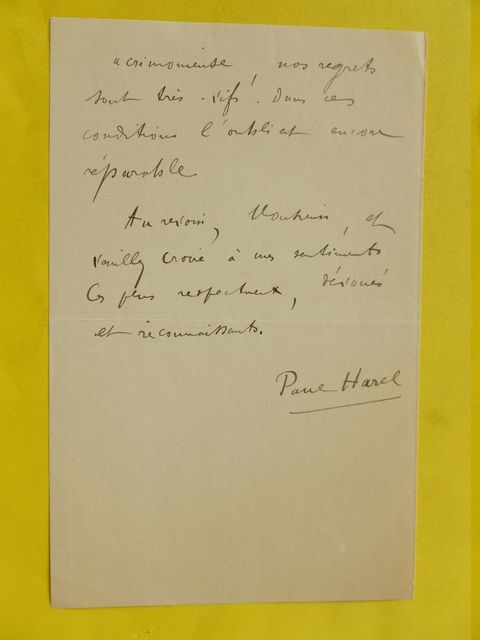 acrimonieuse, nos regrets
sont très vifs. Dans ces
conditions l'oubli est encore
réparable.
Au revoir, Monsieur, et
veuillez croire à mes sentiments
les plus respectueux, dévoués
et reconnaissants.
Paul Harel